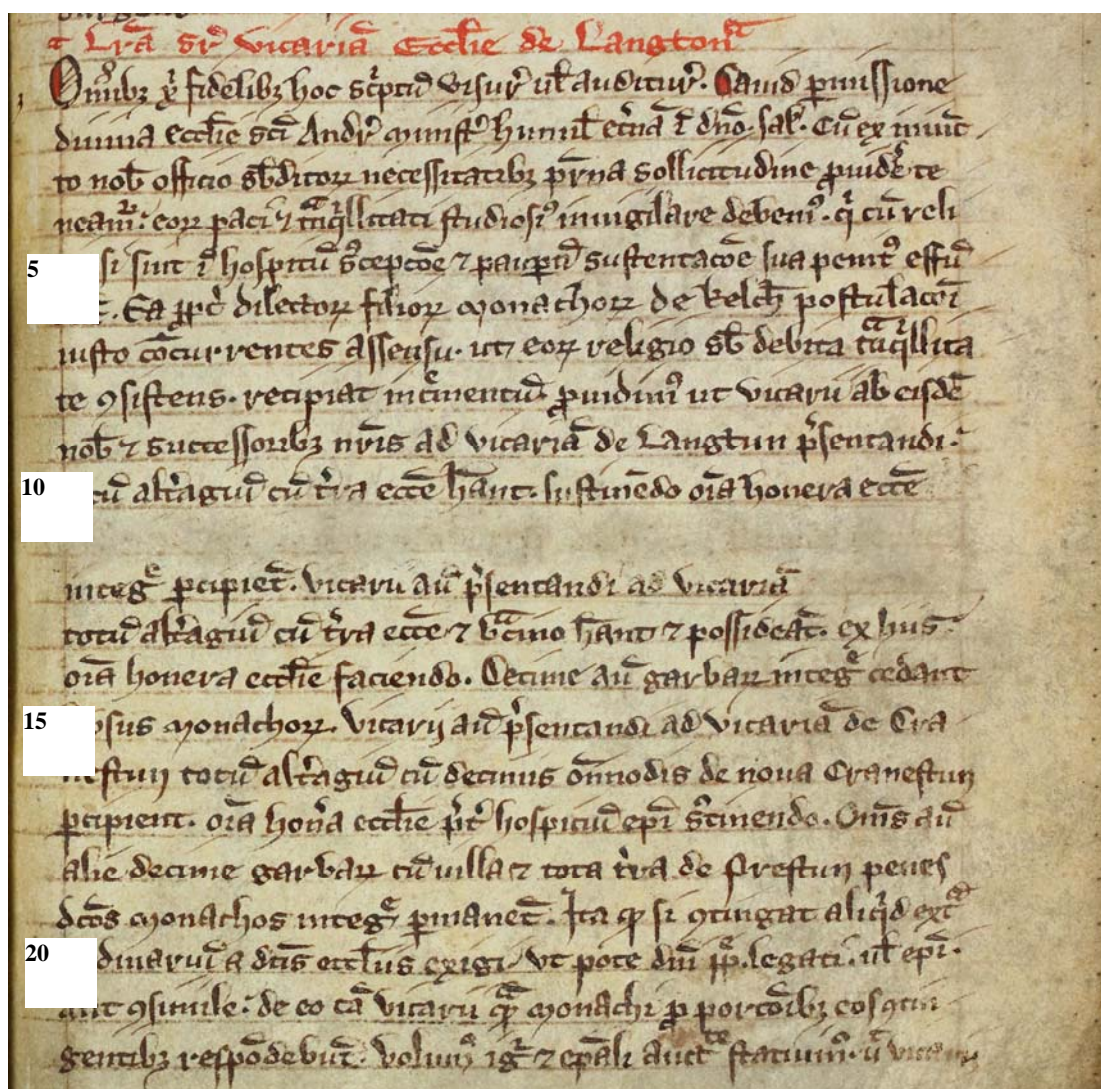 t Lrã sr̄ vicariã Eccl̄ie de Langtona
Omībꝫ xp̄i fidelibꝫ hoc sc̃ptū visur̃ ul̃ auditur̃. Dauid ꝑmissione
diuina eccl̄ie sc̄i Andr̃ minist̃ humil̃ et̃nã ī dño. sal̃. Cū ex iniūc
to nob̃ officio sb̄ditoꝝ necessitatibꝫ pr̄na sollicitudine ꝓuidẽ te
neam᷑: eoꝝ paci ⁊ tͣq̃llitati studiosiꝰ inuigilare debemꝰ. q̃ cū reli
5 si sint ī hospitū s̃cepcōe ⁊ pauꝑū sustentacōe sua penitꝰ effū
t. Ea ꝓpt̃ dilectoꝝ filioꝝ monachoꝝ de kelch̃ postulacōi
iusto cōcurrentes assensu. ut eoꝝ religio sb̄ debita tͣq̃llita
te ꝯsistens. recipiat inc̃mentū ꝓuidimꝰ ut vicarii ab eisdē
nob̃ ⁊ successoribꝫ nr̄is ad vicariã de Langtun p̃sentandi.
10 tū alt̃agiū cū t̃ra ecc̄e hãnt. sustinēdo oīa honera ecc̄e
integͤ ꝑcipiēt. vicarii aū p̃sentandi ad vicariã
totū alt̃agiū cū t̃ra ecc̄e ⁊ hãnt ⁊ possideãt. ex hiis
oīa honera eccl̄ie faciendo. Decime aū garbaꝝ integͤ cedant
15 vsus monachoꝝ. vicarij aū p̃sentandi ad vicariã de Cra
nestun totū alt̃agiū cū decimis ōīmodis de noua Cranestun
ꝑcipient. oīa hoña eccl̄ie p̃t̃ hospiciū ep̄i s̃tinendo. Om̄s aū
alie decime garbaꝝ cū uilla ⁊ tota t̃ra de Prestun penes
dc̄os monachos integͤ ꝑmaneãt. Ita qꝫ si ꝯtingat aliq̃d extͣ
20 dinariū a dc̄is eccl̄iis exigi. vt pote dñi pp̃. legati. ul̃ ep̄i.
aut ꝯsimile: de eo tã vicarii q̃ monachi ꝓ porcōibꝫ eos ꝯtin
gentibꝫ respōdebūt. volumꝰ igͥ ⁊ ep̄ali auctͭe statuimꝰ.